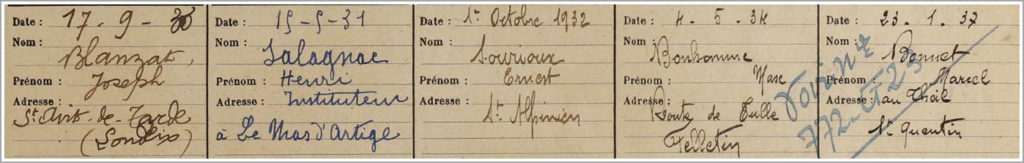 Date : 17-9-36
Nom :
Blanzat,
Prénom : Joseph
Adresse :
St Avit-de-Tarde
(Soudeix)
Date : 15-5-31
Nom :
Salagnac
Prénom : Henri
Adresse : Instituteur
à Le Mas d'Artige
Date : 1er Octobre 1932
Nom :
Sourioux
Prénom : Ernest
Adresse :
St Alpinien
Date : 4.5.34
Nom :
Bonhomme
Prénom : Marc
Adresse :
Route de Tulle
Felletin
Date : 23.1.37
Nom :
Bonnet
Prénom : Marcel
Adresse : au Theil
St Quentin
Voir n°
772-C123